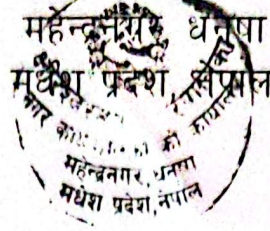 महेन्द्रनगर, धनुषा
मधेश प्रदेश, नेपाल
नगर को कार्यालय
महेन्द्रनगर, धनुषा
मधेश प्रदेश, नेपाल